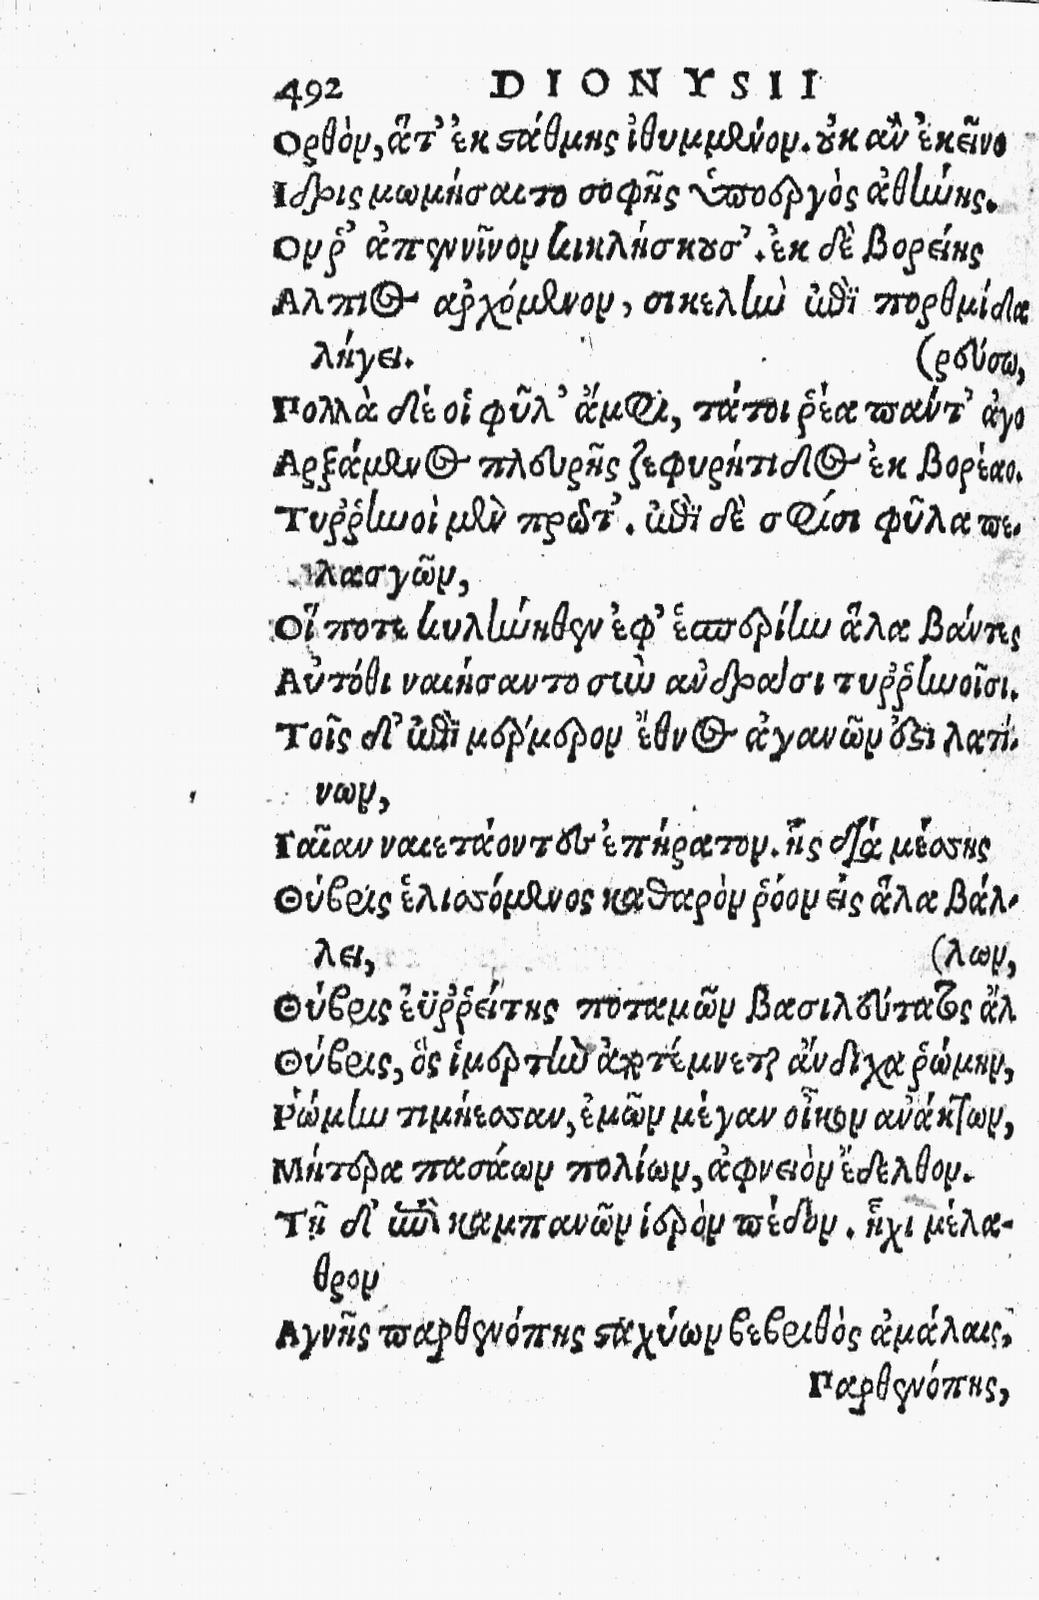 492 DIONYSII
Ορθὸν, ἅτ' ἐκ στάθμης ἰθυμμένον. οὐκ ἂν ἐκεῖνο
Ιδρις μωμήσαιτο σοφῆς ὑποεργὸς ἀθήνης.
Ον ῥ' ἀπεννῖνον κικλήσκουσ'. ἐκ δὲ βορείης
Αλπιος ἀρχόμενον, σικελὴν ἐπὶ πορθμίδα
λήγει. (ρεύσω,
Πολλὰ δέ οἱ φῦλ' ἄμφι, τά τοι ῥέα παντ' ἀγο
Αρξάμενος πλευρῆς ζεφυρήτιδος ἐκ βορέαο.
Τυρῤῥηνοὶ μὲν πρῶτ'. ἐπὶ δὲ σφίσι φῦλα πε-
λασγῶν,
Οἵ ποτε κυλλήνηθεν ἐφ' ἑσπερίην ἅλα βάντες
Αὐτόθι ναιήσαντο σὺν ἀνδράσι τυρῤῥηνοῖσι.
Τοῖς δ' ἐπὶ μέρμερον ἔθνος ἀγανῶν ὅσι λατί-
νων,
Γαῖαν ναιετάοντες ἐπήρατον. ἧς διὰ μέσσης
Θύβρις ἑλισσόμενος καθαρὸν ῥόον εἰς ἅλα βάλ-
λει, (λων,
Θύβρις ἐϋῤῥείτης ποταμῶν βασιλεύτατος ἄλ
Θύβρις, ὃς ἱμερτὴν ἀποτέμνεται ἄνδιχα ῥώμην,
Ρώμην τιμήεσσαν, ἐμῶν μέγαν οἶκον ἀνάκτων,
Μητέρα πασάων πολίων, ἀφνειὸν ἔδελθον.
Τῇ δ' ἐπὶ καμπανῶν ἱερὸν πέδον. ἧχι μέλα-
θρον
Αγνῆς παρθενόπης σταχύων βεβριθὸς ἀμάλαις,
Παρθενόπης,